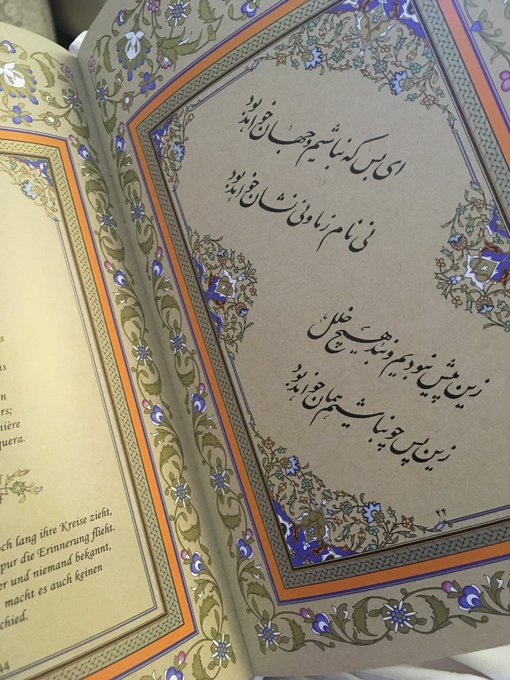 ای بس که نباشیم و جهان خواهد بود
نی نام ز ما و نی نشان خواهد بود
زین پیش نبودیم و نبد هیچ خلل
زین پس چو نباشیم همان خواهد بود
۴۴
s
ns
n
rs;
nière
quera.
och lang ihre Kreise zieht,
pur die Erinnerung flieht.
er und niemand bekannt,
, macht es auch keinen
schied.
44